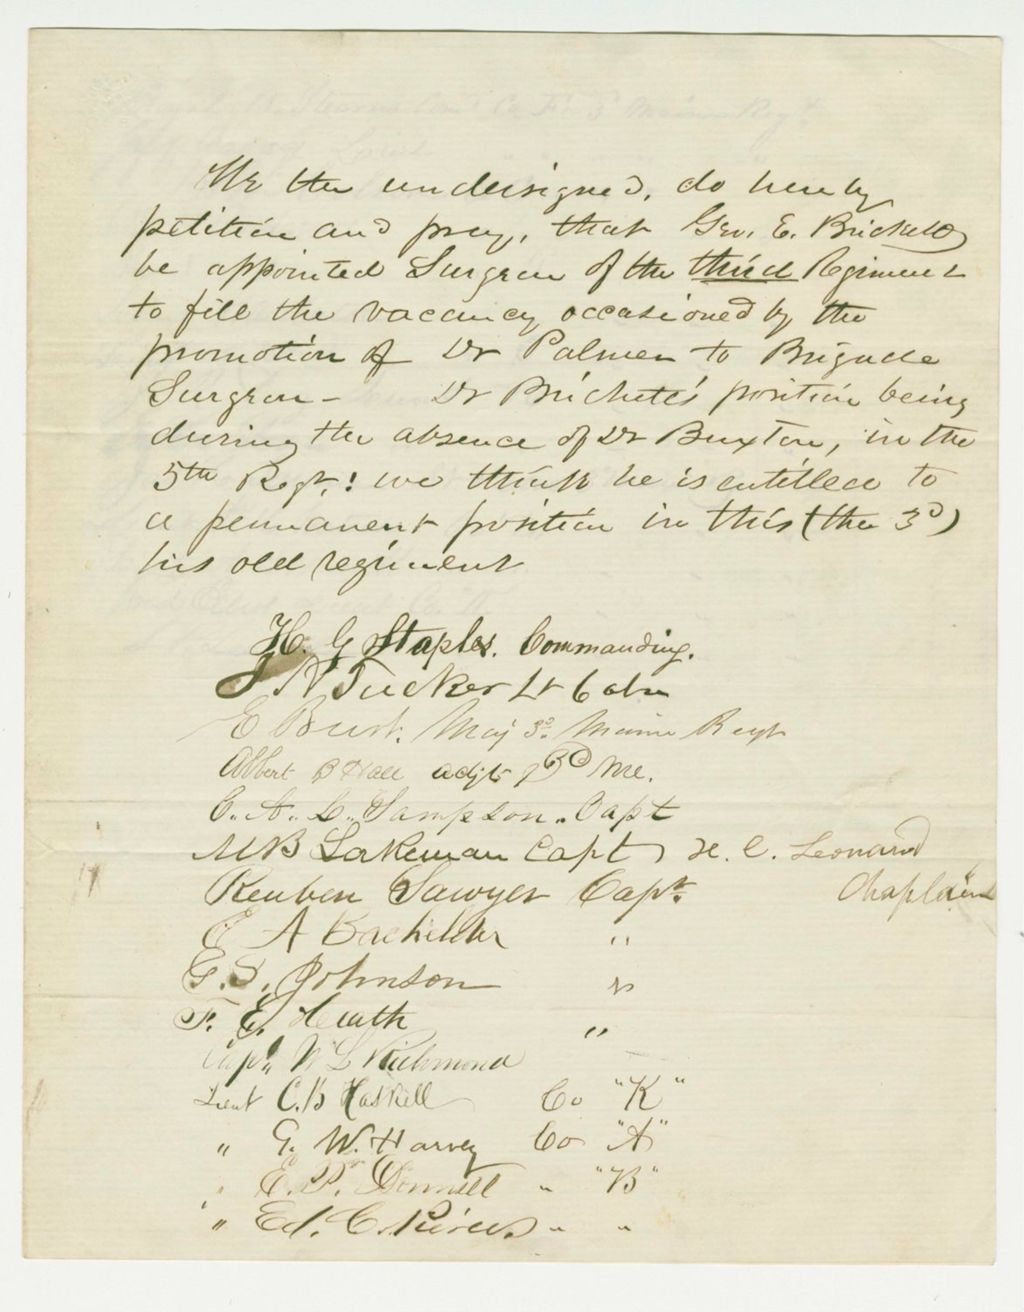 We the undersigned, do hereby
petition and pray, that Geo. E. Brickett
be appointed Surgeon of the third Regiment
to fill the vacancy occasioned by the
promotion of Dr Palmer to Brigade
Surgeon - Dr Brickett's position being
during the absence of Dr Buxton, in the
5th Regt.! we think he is entitled to
a permanent position in this (the 3d)
his old regiment
H. G Staples. Commanding.
Tucker Lt Coln
E Burt. Maj 3d. Maine Regt
Albert B Hall adjt 3d Me.
C. A. L. Sampson. Capt
M B Lakeman Capt H. C. Leonard
Reuben Sawyer Capt. Chaplain
E A Batchelder "
G. S. Johnson "
F. E. Heath "
Capt W L Richmond
Lieut C. B Haskell Co "K"
" G. W. Harvey Co "A"
" E. P. Donnell " "B"
" Ed. C. Pierce " "